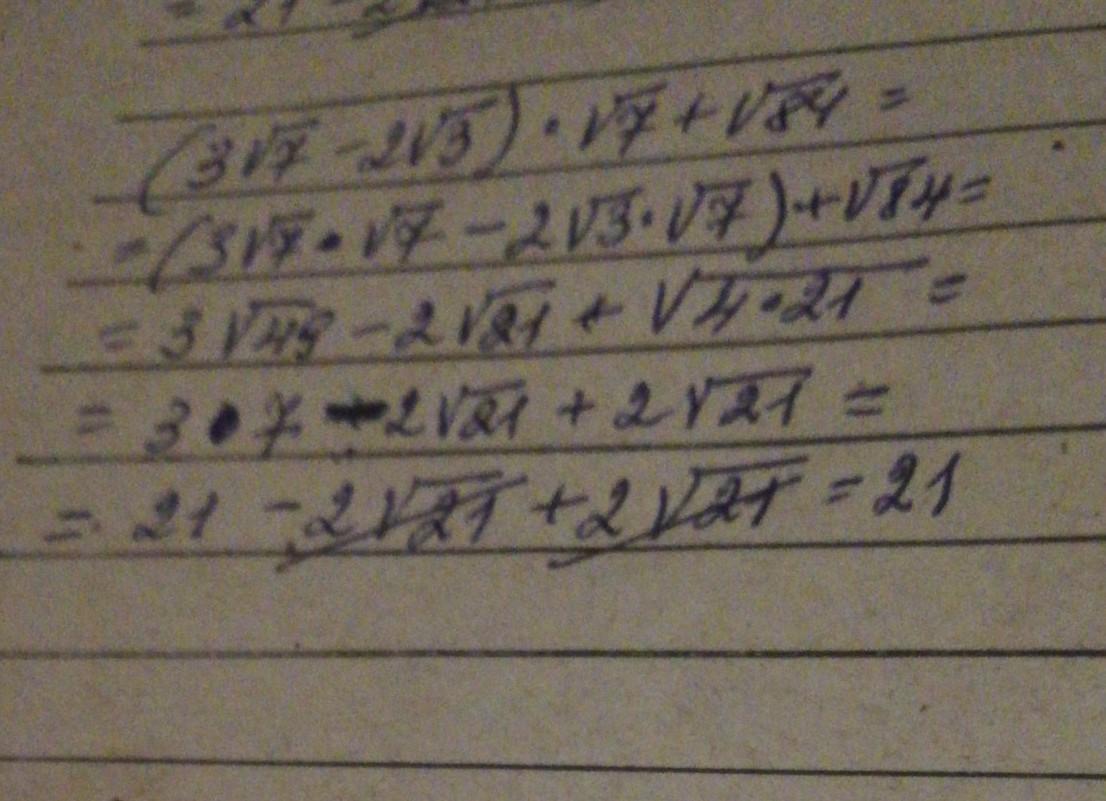 (3√7 - 2√3) · √7 + √84 =
= (3√7 · √7 - 2√3 · √7) + √84 =
= 3√49 - 2√21 + √4·21 =
= 3 · 7 - 2√21 + 2√21 =
= 21 - 2√21 + 2√21 = 21